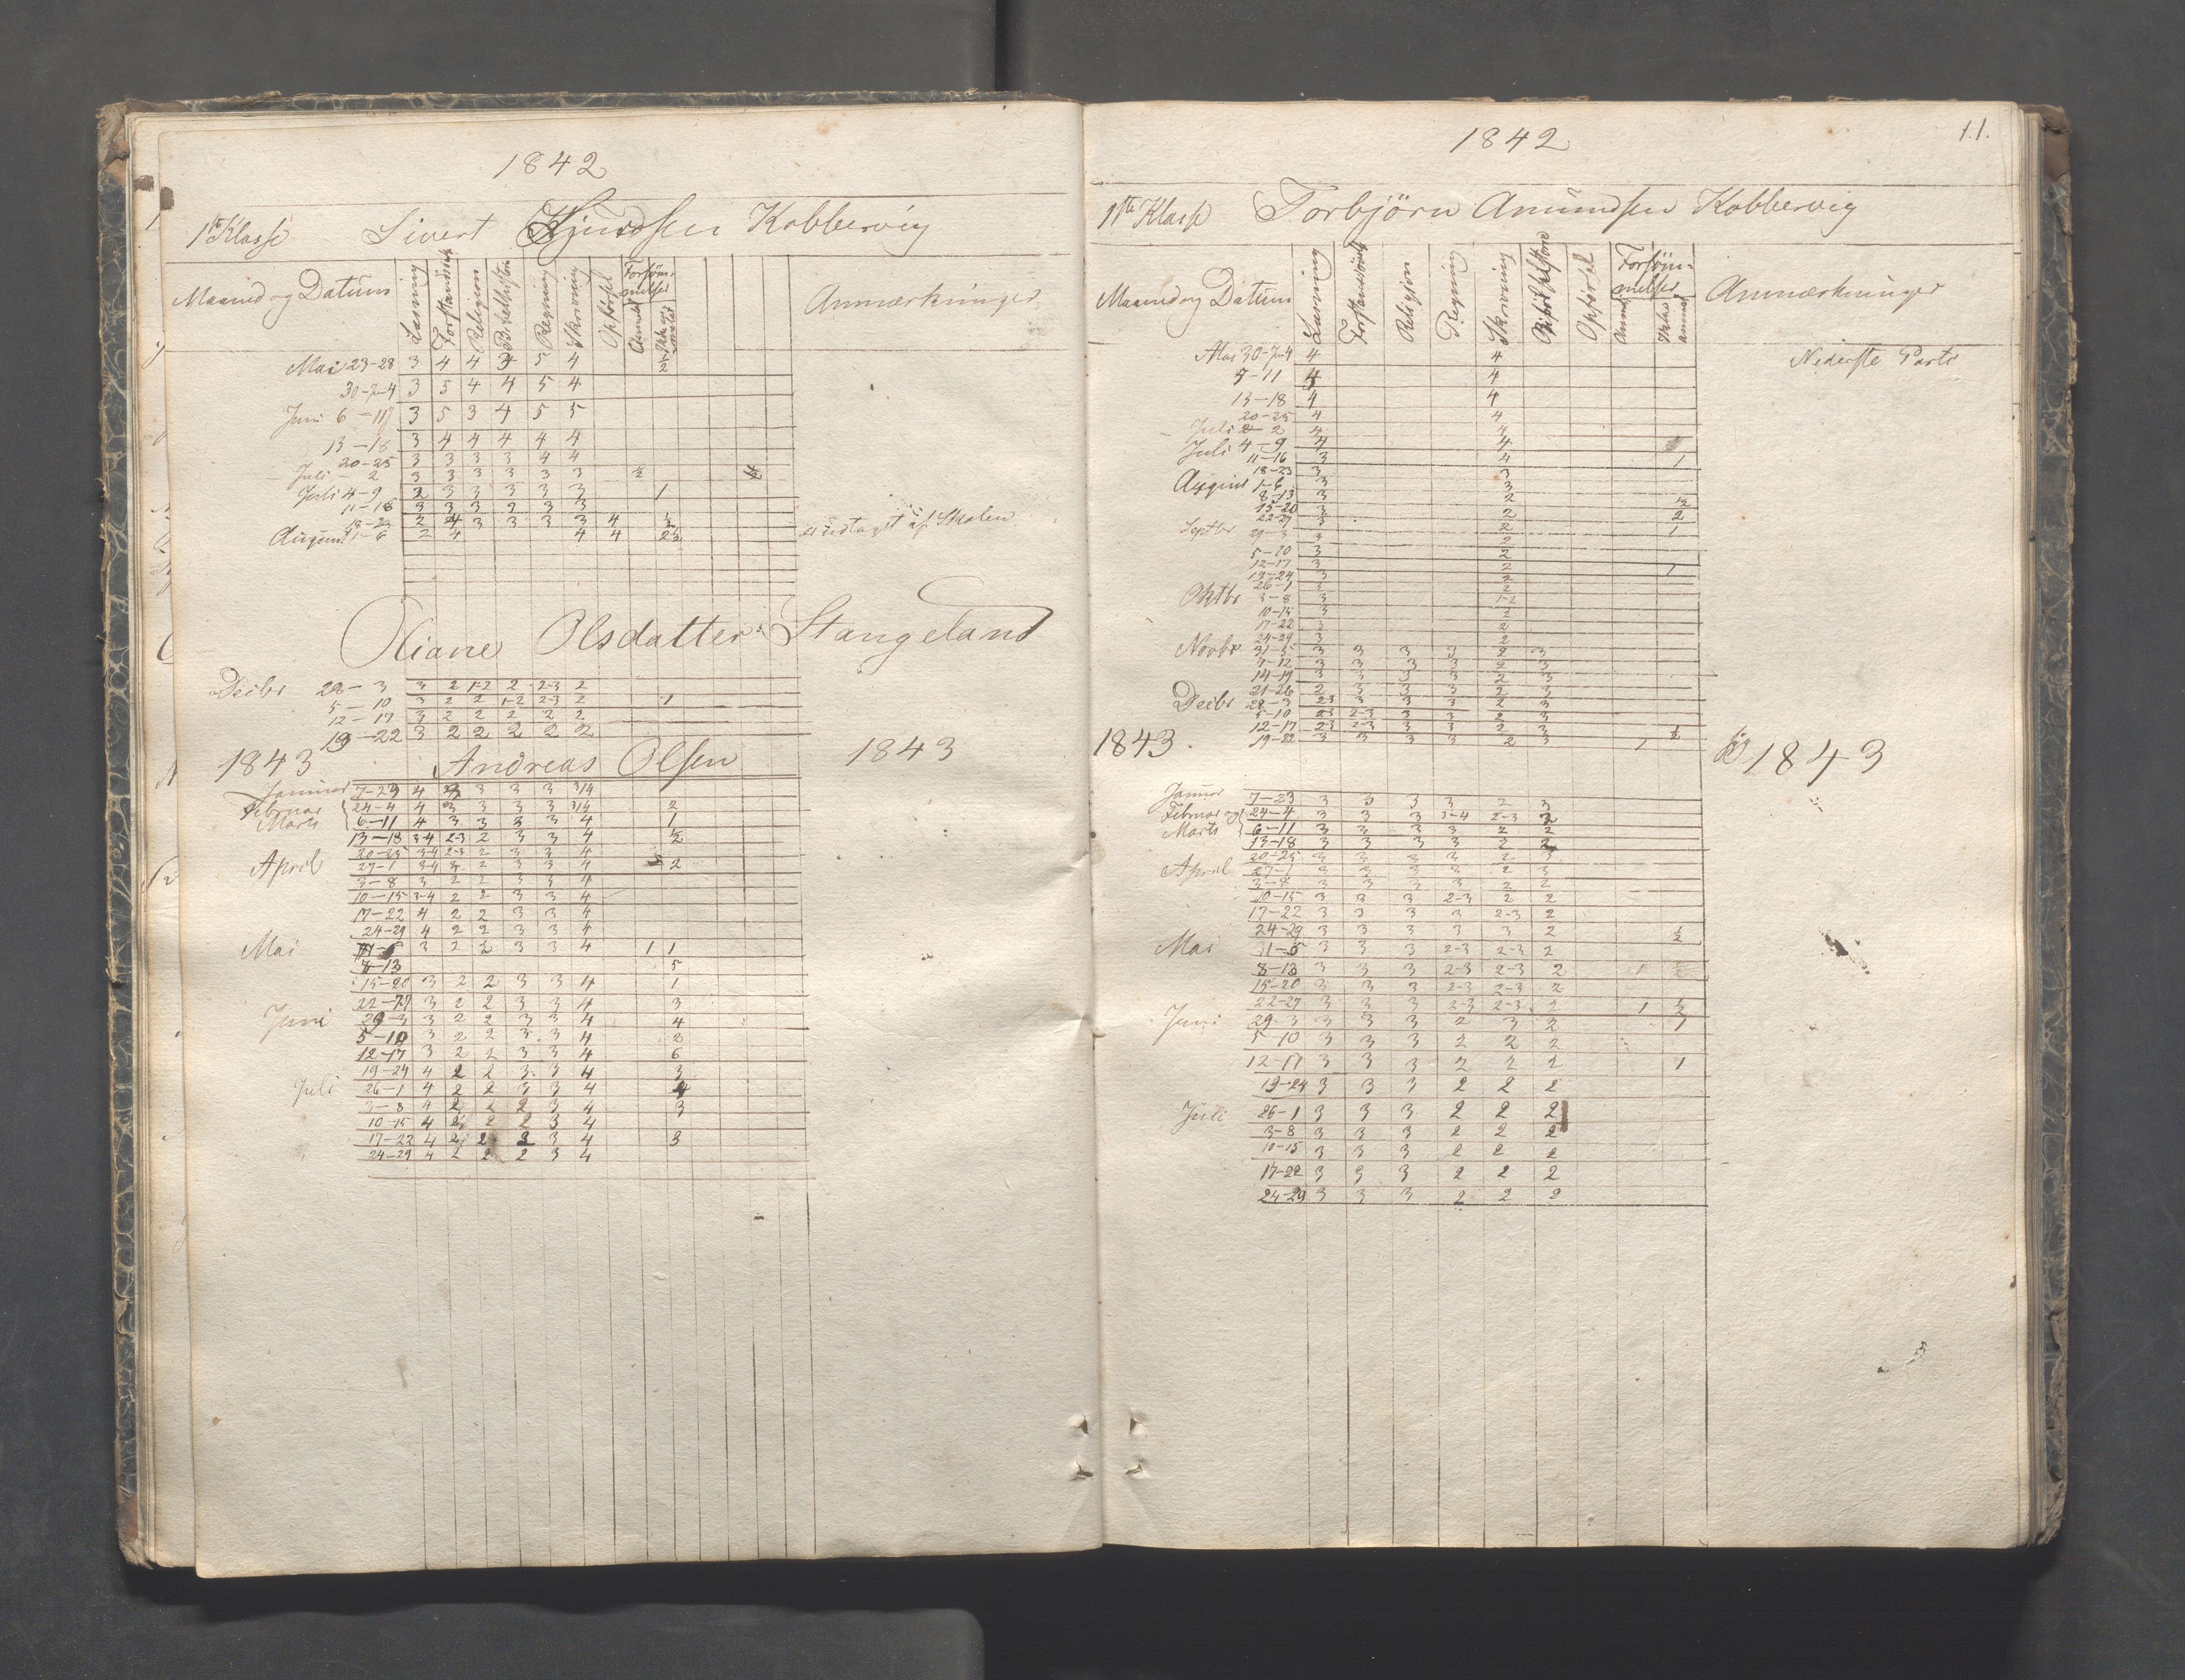 1842
1ste Klasse Sivert Knudsen Kobbervig
Maaned og Datum Læsning Forstandsøvelse Religion Bibelhistorie Regning Skrivning Opførsel Forsømmelser Anmeldt Ikke anmeldt Anmærkninger
Mai 23-28 3 4 4 3 5 4 ½
30-Jun 4 3 5 4 4 5 4
Juni 6-11 3 5 3 4 5 5
13-18 3 4 4 4 4 4
20-25 3 3 3 3 4 4
Juli - 2 3 3 3 3 3 3 ½
Juli 4-9 2 3 3 3 3 3 1
11-16 3 3 3 3 3 3
18-23 2 4 3 3 3 3 4 ½ er udtaget af Skolen
August 1-6 2 4 4 4 2½
Oliane Olsdatter Stangeland
Decbr 28-3 3 2 1-2 2 2-3 2
5-10 3 2 2 1-2 2-3 2 1
12-17 3 2 2 2 2 2
19-22 3 2 2 2 2 2
1843 Andreas Olsen 1843
Januar 7-23 4 3 3 3 3
Februar 24-4 4 3 3 3 3 2
Marts 6-11 4 3 3 3 3 4 1
13-18 3-4 2-3 2 3 3 4 ½
20-25 3-4 2-3 2 3 3 4
April 27-1 3-4 3 2 3 3 4 2
3-8 3 2 2 3 3 4
10-15 3-4 2 2 3 3 4
17-22 4 2 2 3 3 4
24-29 4 2 2 3 3 4
Mai 3 2 2 3 3 4 1 1
8-13 5
15-20 3 2 2 3 3 4 1
22-27 3 2 2 3 3 4 3
Juni 29-3 3 2 2 3 3 4 4
5-10 3 2 2 3 3 4 2
12-17 3 2 2 3 3 4 6
19-24 4 2 2 3 3 4 3
Juli 26-1 4 2 2 3 3 4 4
3-8 4 2 2 2 3 4 3
10-15 4 2 2 2 3 4
17-22 4 2 2 2 3 4 3
24-29 4 2 2 2 3 4
1842 11.
1ste Klasse Torbjörn Amundsen Kobbervig
Maaned og Datum Læsning Forstandsøvelse Religion Regning Skrivning Bibelhistorie Opførsel Forsømmelser Anmeldt Ikke anmeldt Anmærkninger
Mai 30-Jun 4 4 4 Nederste Parti
5-11 4 4
13-18 4 4
20-25 4 4
Juli 2 4 4
Juli 4-9 4 4
11-16 3 4 1
18-23 3 3
August 1-6 3 3
8-13 3 2 ½
15-20 3 2 2
22-27 3 2 1
Septbr 29-3 3 2
5-10 3 2
12-17 3 2 1
19-24 3 2
26-1 3 2
Oktbr 3-8 3 1-2
10-15 3 2
17-22 3 2
24-29 3 2
Novbr 31-5 3 3 3 3 2 3
7-12 3 3 3 3 2 3
14-19 3 3 3 3 2 3
21-26 2 3 3 3 2 3
Decbr 28-3 2-3 3 3 3 2 3
5-10 2-3 2-3 3 3 2 3
12-17 2-3 2-3 3 3 2 3 ½
19-22 3 3 3 3 2 3 1
1843 1843
Januar 7-23 3 3 3 3 2 3
Februar og 24-4 3 3 3 3-4 2-3 2
Marts 6-11 3 3 3 3 2 2
13-18 3 3 3 3 2 2
20-25 3 3 3 3 2 3
April 27-1 3 3 3 3 2 3
3-8 3 3 3 3 2 2
10-15 3 3 3 2-3 2 2
17-22 3 3 3 3 2-3 2
24-29 3 3 3 3 3 2 ½
Mai 31-5 3 3 3 2-3 2-3 2
8-13 3 3 3 2-3 2-3 2 1
15-20 3 3 3 2-3 2-3 2
22-27 3 3 3 2-3 2-3 2 1 ½
Juni 29-3 3 3 3 2 3 2 1
5-10 3 3 3 2 2 2
12-17 3 3 3 2 2 2 1
19-24 3 3 3 2 2 2
Juli 26-1 3 3 3 2 2 2
3-8 3 3 3 2 2 2
10-15 3 3 3 2 2 2
17-22 3 3 3 2 2 2
24-29 3 3 3 2 2 2